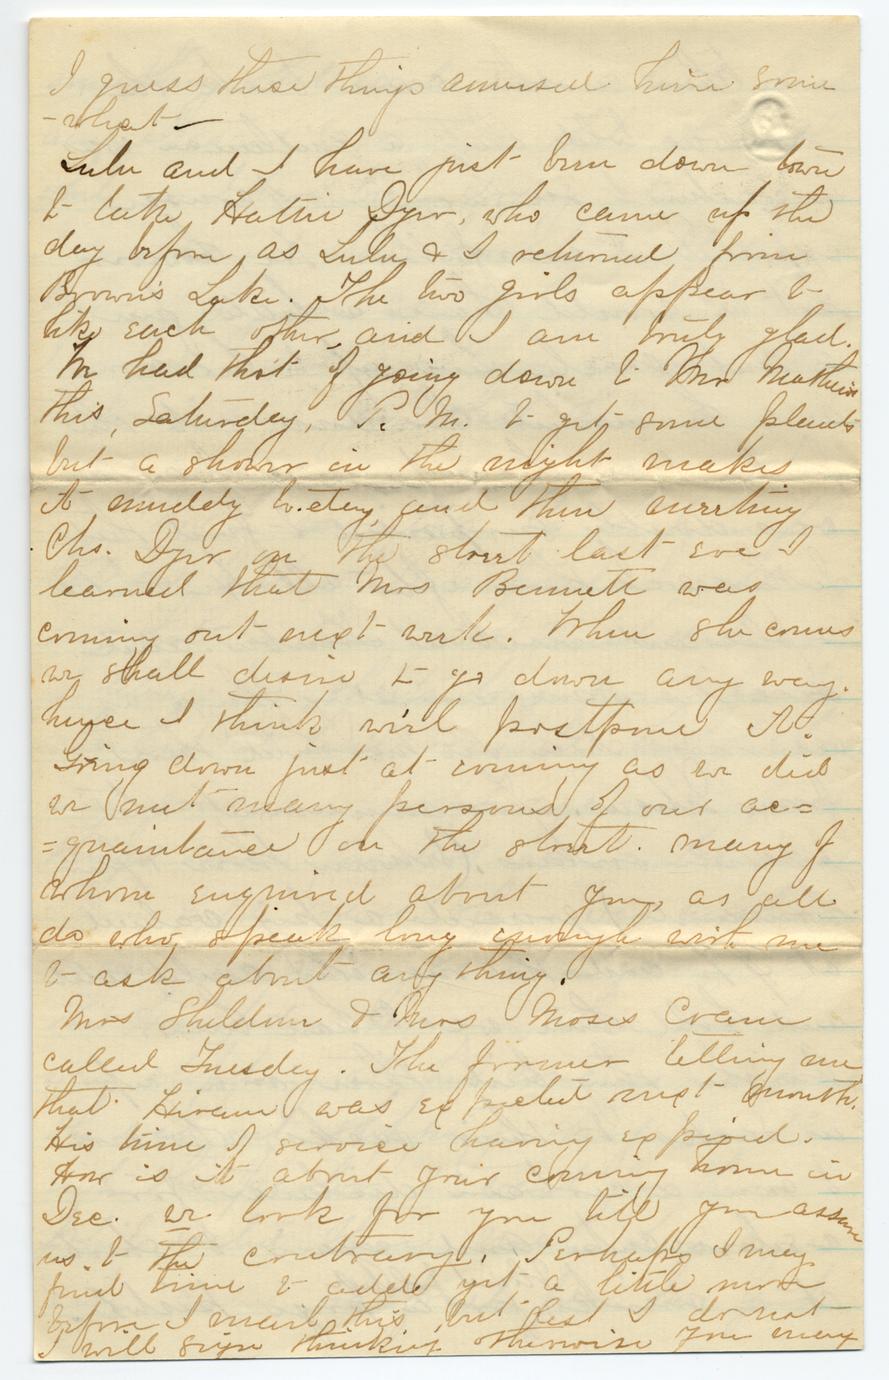 I guess these things amused him some
-what -
Lulu and I have just been down town
to take Hattie Dyer, who came up the
day before, as Lulu & I returned from
Brown's Lake. The two girls appear to
like each other, and I am truly glad.
We had thot of going down to Mr Mathews
this, Saturday, P. M. to get some plants
but a shower in the night makes
it muddy to.day, and then meeting
Chs. Dyer on the street last eve I
learned that Mrs Bennett was
coming out next week. When she comes
we shall desire to go down any way.
hence I think we'd postpone it.
Going down just at evening as we did
we met many persons of our ac=
=quaintance on the street. many of
whom enquired about you, as all
do who speak long enough with me
to ask about any thing.
Mrs Sheldon & Mrs Moses Crane
called Tuesday. The former telling me
that Hiram was expected next month.
His time of service having expired.
How is it about your coming home in
Dec. we look for you till you assure
us. to the contrary. Perhaps I may
find time to add yet a little more
before I mail this, but lest I do not
I will sign thinking otherwise you may